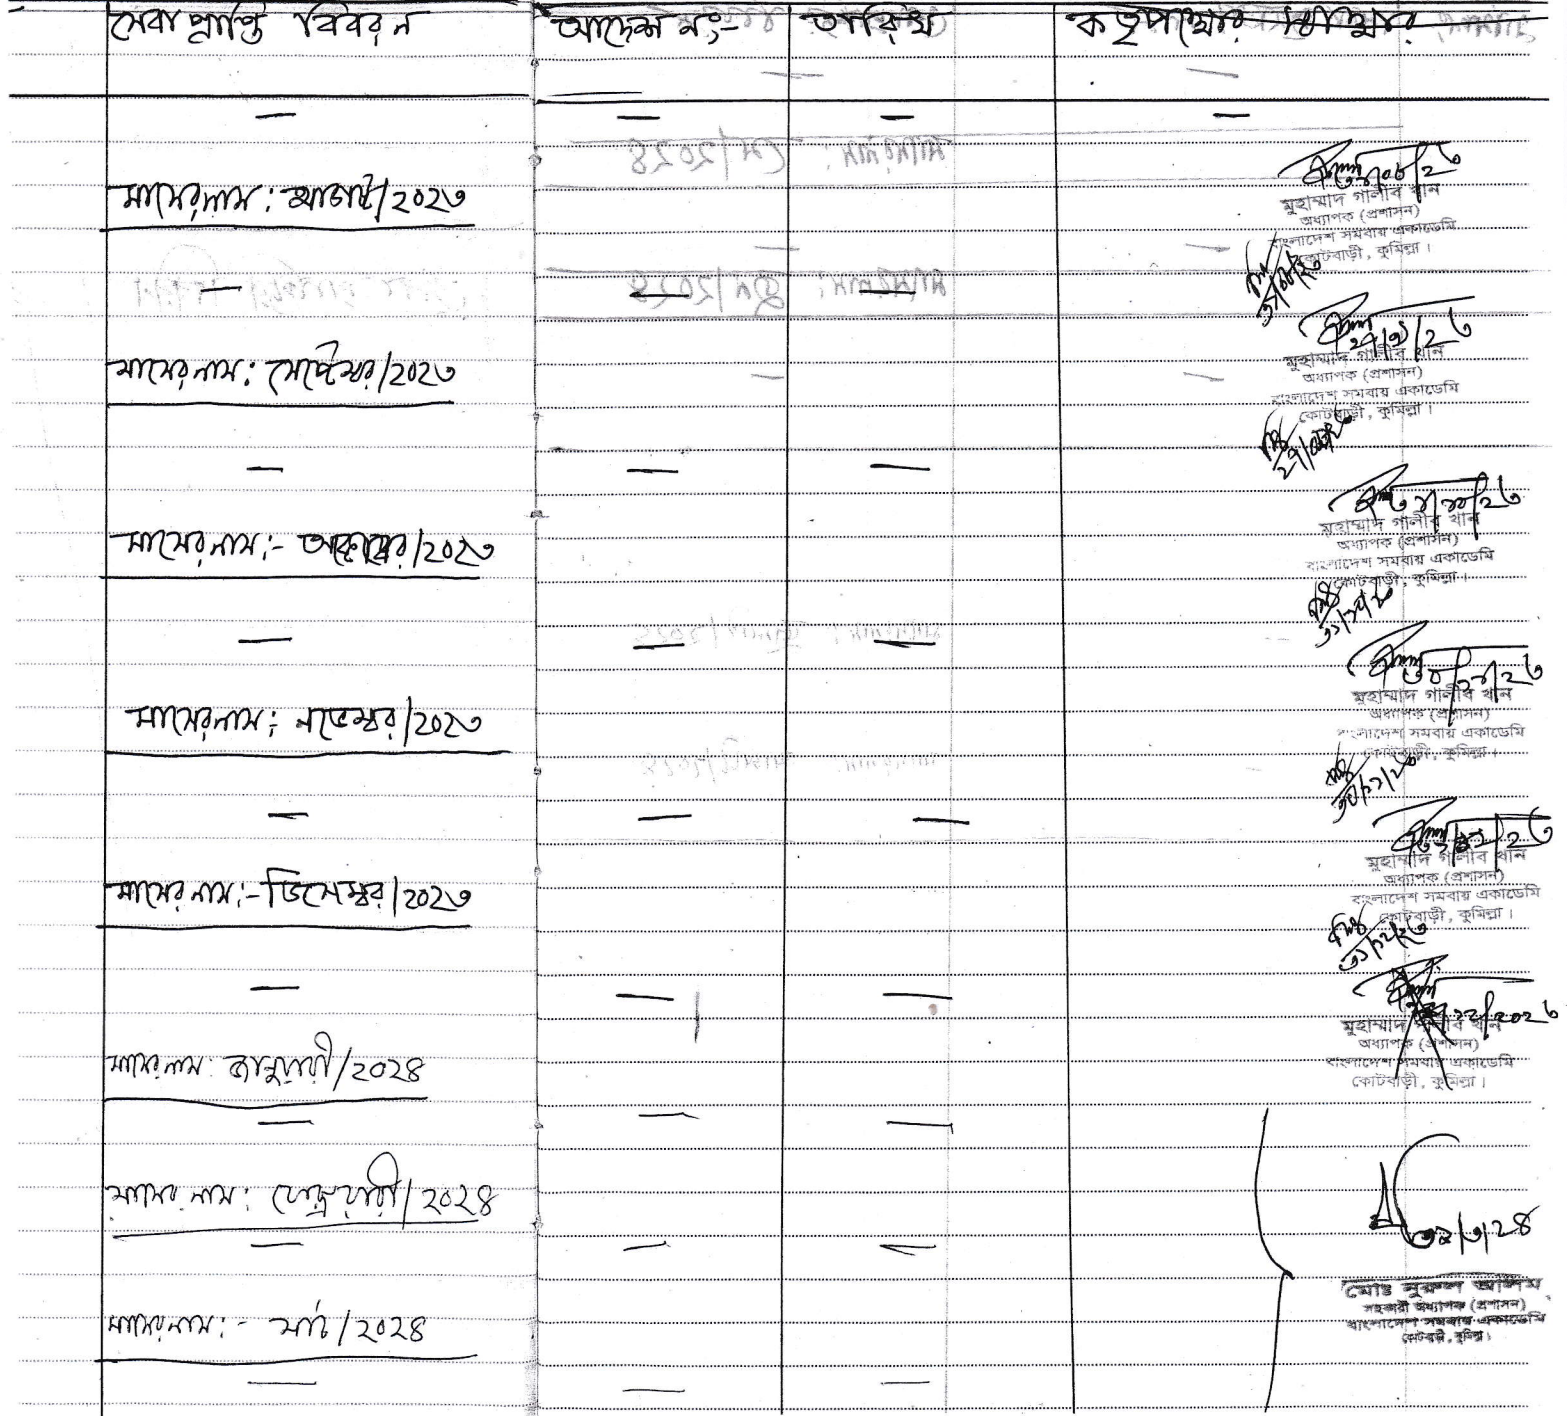 সেবা প্রাপ্তি বিবরন আদেশ নং:- তারিখ কতৃপক্ষের স্বাক্ষর
— — — —
মাসের নাম: আগষ্ট/২০২৩
৩১/০৮/২৩
মুহাম্মাদ গালীব খান
অধ্যাপক (প্রশাসন)
বাংলাদেশ সমবায় একাডেমি
কোটবাড়ী, কুমিল্লা।
— — —
মাসের নাম: সেপ্টেম্বর/২০২৩
২৭/০৯/২৩
মুহাম্মাদ গালীব খান
অধ্যাপক (প্রশাসন)
বাংলাদেশ সমবায় একাডেমি
কোটবাড়ী, কুমিল্লা।
— — —
মাসের নাম:- অক্টোবর/২০২৩
৩১/১০/২৩
মুহাম্মাদ গালীব খান
অধ্যাপক (প্রশাসন)
বাংলাদেশ সমবায় একাডেমি
কোটবাড়ী, কুমিল্লা।
— — —
মাসের নাম: নভেম্বর/২০২৩
৩০/১১/২৩
মুহাম্মাদ গালীব খান
অধ্যাপক (প্রশাসন)
বাংলাদেশ সমবায় একাডেমি
কোটবাড়ী, কুমিল্লা।
— — —
মাসের নাম:- ডিসেম্বর/২০২৩
মুহাম্মাদ গালীব খান
অধ্যাপক (প্রশাসন)
বাংলাদেশ সমবায় একাডেমি
কোটবাড়ী, কুমিল্লা।
৩১/১২/২৩
— — —
মাসের নাম: জানুয়ারী/২০২৪
মুহাম্মাদ গালীব খান
অধ্যাপক (প্রশাসন)
বাংলাদেশ সমবায় একাডেমি
কোটবাড়ী, কুমিল্লা।
— — —
মাসের নাম: ফেব্রুয়ারী/২০২৪
— — —
মাসের নাম:- মার্চ/২০২৪
মোঃ নুরুল আলম
সহকারী অধ্যাপক (প্রশাসন)
বাংলাদেশ সমবায় একাডেমি
কোটবাড়ী, কুমিল্লা।
— — —